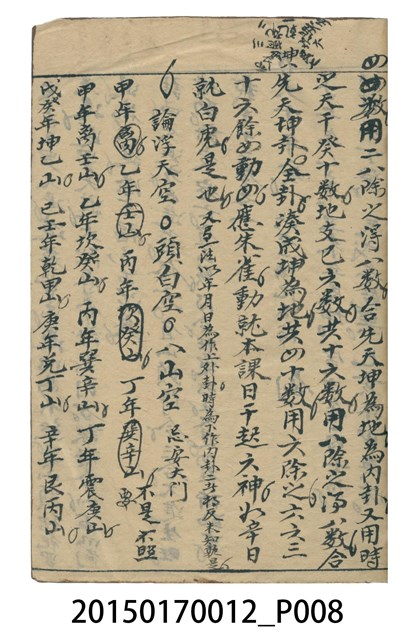 四四數用二八除之得八數合先天坤為地為內卦又用時
之天干癸十數地支巳六數共十六數用八除之得八數合
先天坤卦全卦湊成坤為地共四十數用六除之六六三
十六餘四動四應朱雀動就本課日干起六神如辛日
就白虎是也又一法以年月日為作上外卦時為下作內卦
論浮天空 頭白空 八山空 忌房大門
甲年离乙年壬山丙年坎癸山丁年巽辛山要不是一不照
甲年离壬山乙年坎癸山丙年巽辛山丁年震庚山
戊癸年坤乙山己壬年乾甲山庚年兌丁山辛年艮丙山
20150170012_P008